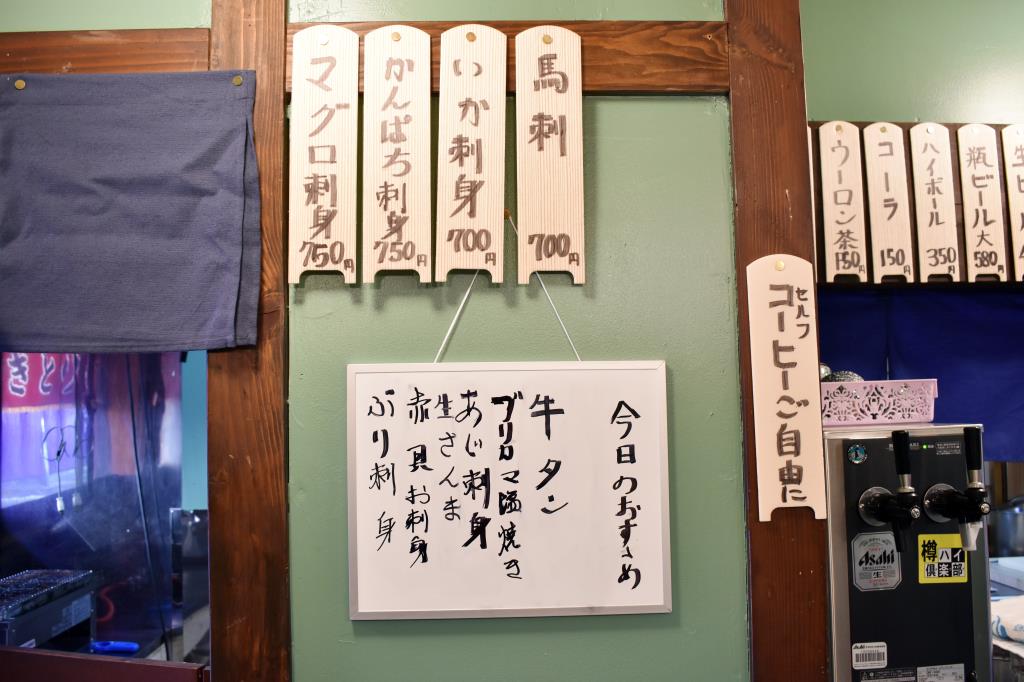 マグロ刺身
750円
かんぱち刺身
750円
いか刺身
700円
馬刺
700円
今日のおすすめ
牛タン
ブリカマ塩焼き
あじ刺身
生さんま
赤貝お刺身
ぶり刺身
セルフ
コーヒーご自由に
ウーロン茶
150円
コーラ
150円
ハイボール
350円
瓶ビール大
580円
きとり
Asahi
生
樽ハイ
倶楽部
Asahi